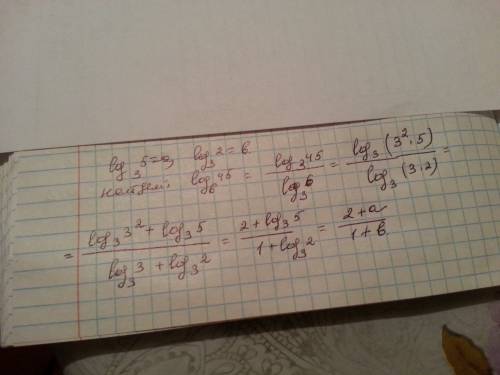 log₃ 5 = a, log₃ 2 = b.
найдем, log₆ 45 = log₃ 45 / log₃ 6 = log₃ (3² · 5) / log₃ (3 · 2) =
= (log₃ 3² + log₃ 5) / (log₃ 3 + log₃ 2) = (2 + log₃ 5) / (1 + log₃ 2) = (2 + a) / (1 + b)